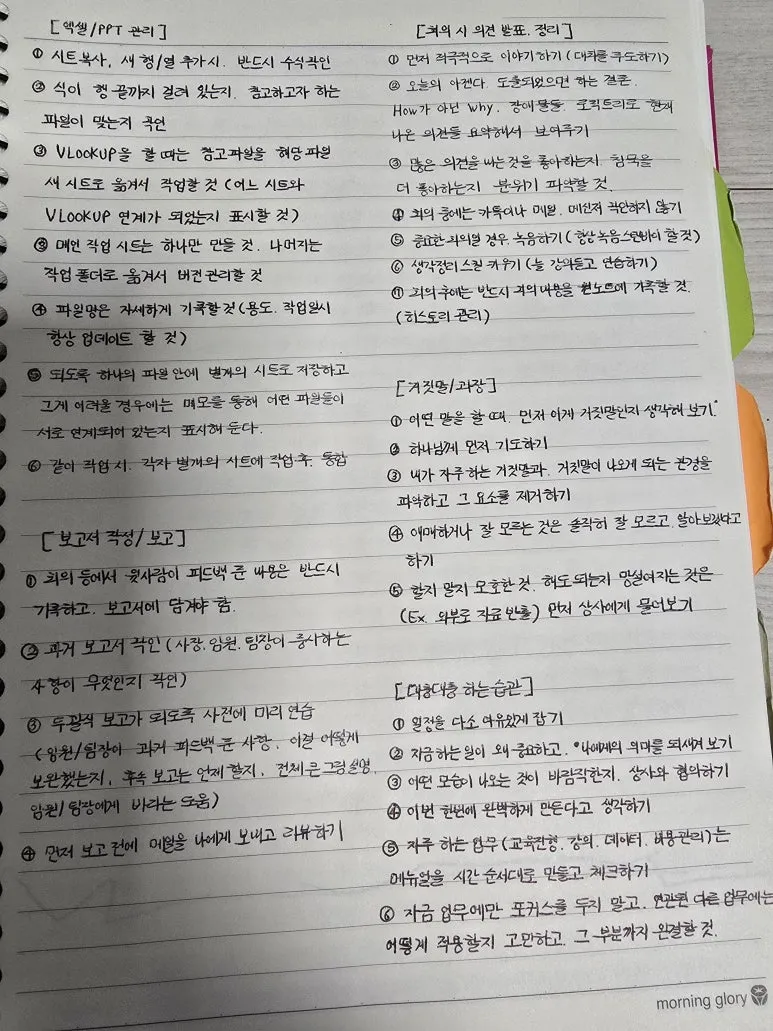 [엑셀/PPT 관리]
① 시트복사, 새 행/열 추가시. 반드시 수식확인
② 식이 행 끝까지 걸려 있는지. 참고하고자 하는
파일이 맞는지 확인
③ VLOOKUP을 할 때는 참고파일을 해당 파일
새 시트로 옮겨서 작업할 것 (어느 시트와
VLOOKUP 연계가 되었는지 표시할 것)
③ 메인 작업 시트는 하나만 만들 것. 나머지는
작업 폴더로 옮겨서 버전관리할 것
④ 파일명은 자세하게 기록할것 (용도. 작업일시
항상 업데이트 할 것)
⑤ 되도록 하나의 파일 안에 별개의 시트로 저장하고
그게 어려울 경우에는 메모를 통해 어떤 파일들이
서로 연계되어 있는지 표시해 둔다.
⑥ 같이 작업 시. 각자 별개의 시트에 작업 후. 통합
[보고서 작성/보고]
① 회의 등에서 윗사람이 피드백 준 내용은 반드시
기록하고. 보고서에 담겨야 함.
② 과거 보고서 확인 (사장. 임원. 팀장이 중시하는
사항이 무엇인지 확인)
③ 두괄식 보고가 되도록 사전에 미리 연습
(임원/팀장이 과거 피드백 준 사항. 이걸 어떻게
보완했는지. 후속 보고는 언제 할지. 전체 큰 그림 설명.
임원/팀장에게 바라는 도움)
④ 먼저 보고 전에 메일을 나에게 보내고 리뷰하기
[회의 시 의견 발표. 정리]
① 먼저 적극적으로 이야기하기 (대화를 주도하기)
② 오늘의 아젠다. 도출되었으면 하는 결론.
How가 아닌 Why. 장애물들. 로직트리로 현재
나온 의견들 요약해서 보여주기
③ 많은 의견을 내는 것을 좋아하는지. 침묵을
더 좋아하는지 분위기 파악할 것.
④ 회의 중에는 카톡이나 메일. 메신저 확인하지 않기
⑤ 중요한 회의일 경우 녹음하기 (항상 녹음 스탠바이 할 것)
⑥ 생각정리 스킬 키우기 (늘 강의듣고 연습하기)
⑦ 회의 후에는 반드시 회의 내용을 원노트에 기록할 것.
(히스토리 관리)
[거짓말/과장]
① 어떤 말을 할 때. 먼저 이게 거짓말인지 생각해 보기.
② 하나님께 먼저 기도하기
③ 내가 자주 하는 거짓말과. 거짓말이 나오게 되는 환경을
파악하고 그 요소를 제거하기
④ 애매하거나 잘 모르는 것은 솔직히 잘 모르고. 알아보겠다고
하기
⑤ 할지 말지 모호한 것. 해도 되는지 망설여지는 것은
(Ex. 외부로 자료 반출) 먼저 상사에게 물어보기
[대충대충 하는 습관]
① 일정을 다소 여유있게 잡기
② 지금하는 일이 왜 중요하고. 나에게의 의미를 되새겨 보기
③ 어떤 모습이 나오는 것이 바람직한지. 상사와 협의하기
④ 이번 한번에 완벽하게 만든다고 생각하기
⑤ 자주 하는 업무 (교육진행. 강의. 데이터. 비용관리)는
메뉴얼을 시간 순서대로 만들고 체크하기
⑥ 지금 업무에만 포커스를 두지 말고. 연관된 다른 업무에는
어떻게 적용할지 고민하고. 그 부분까지 완결할 것.
morning glory